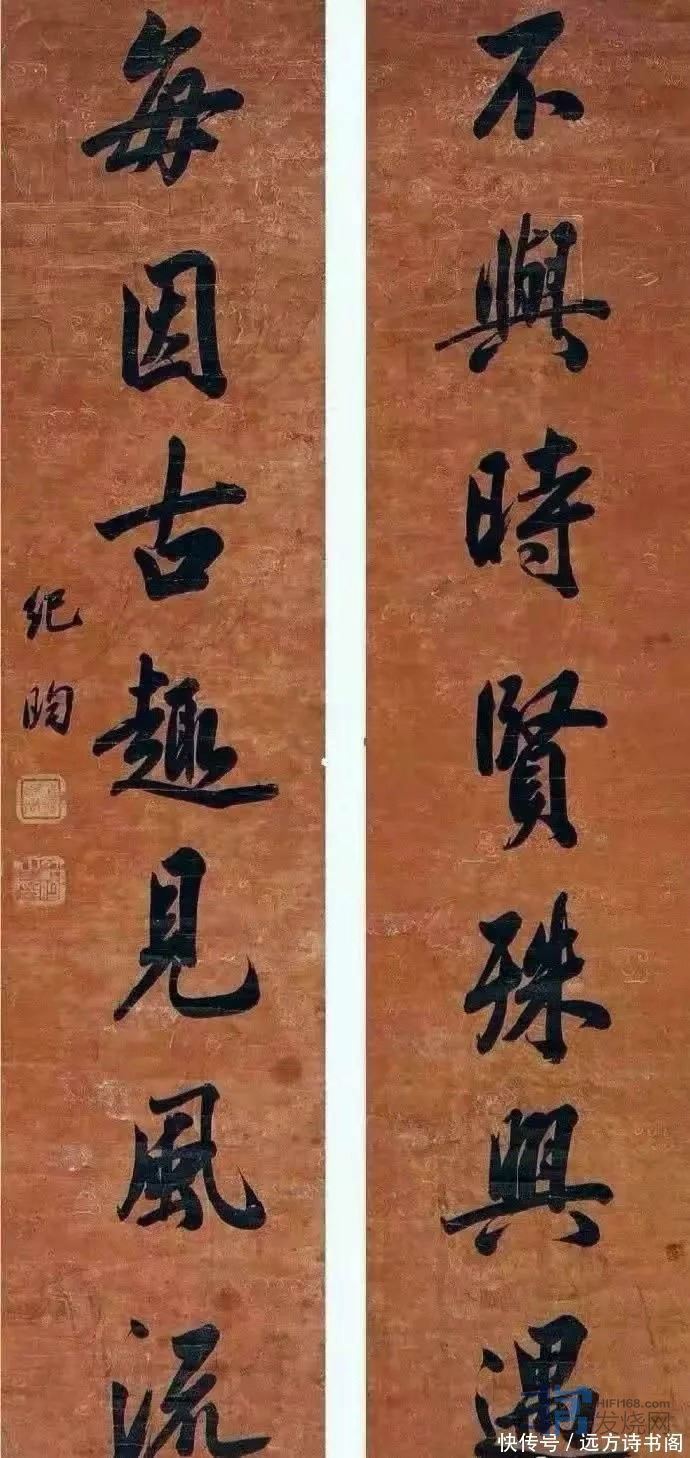 不與時賢殊興遇
每因古趣見風流
紀昀
HIFI168.com
发烧网
快传号 / 远方诗书阁